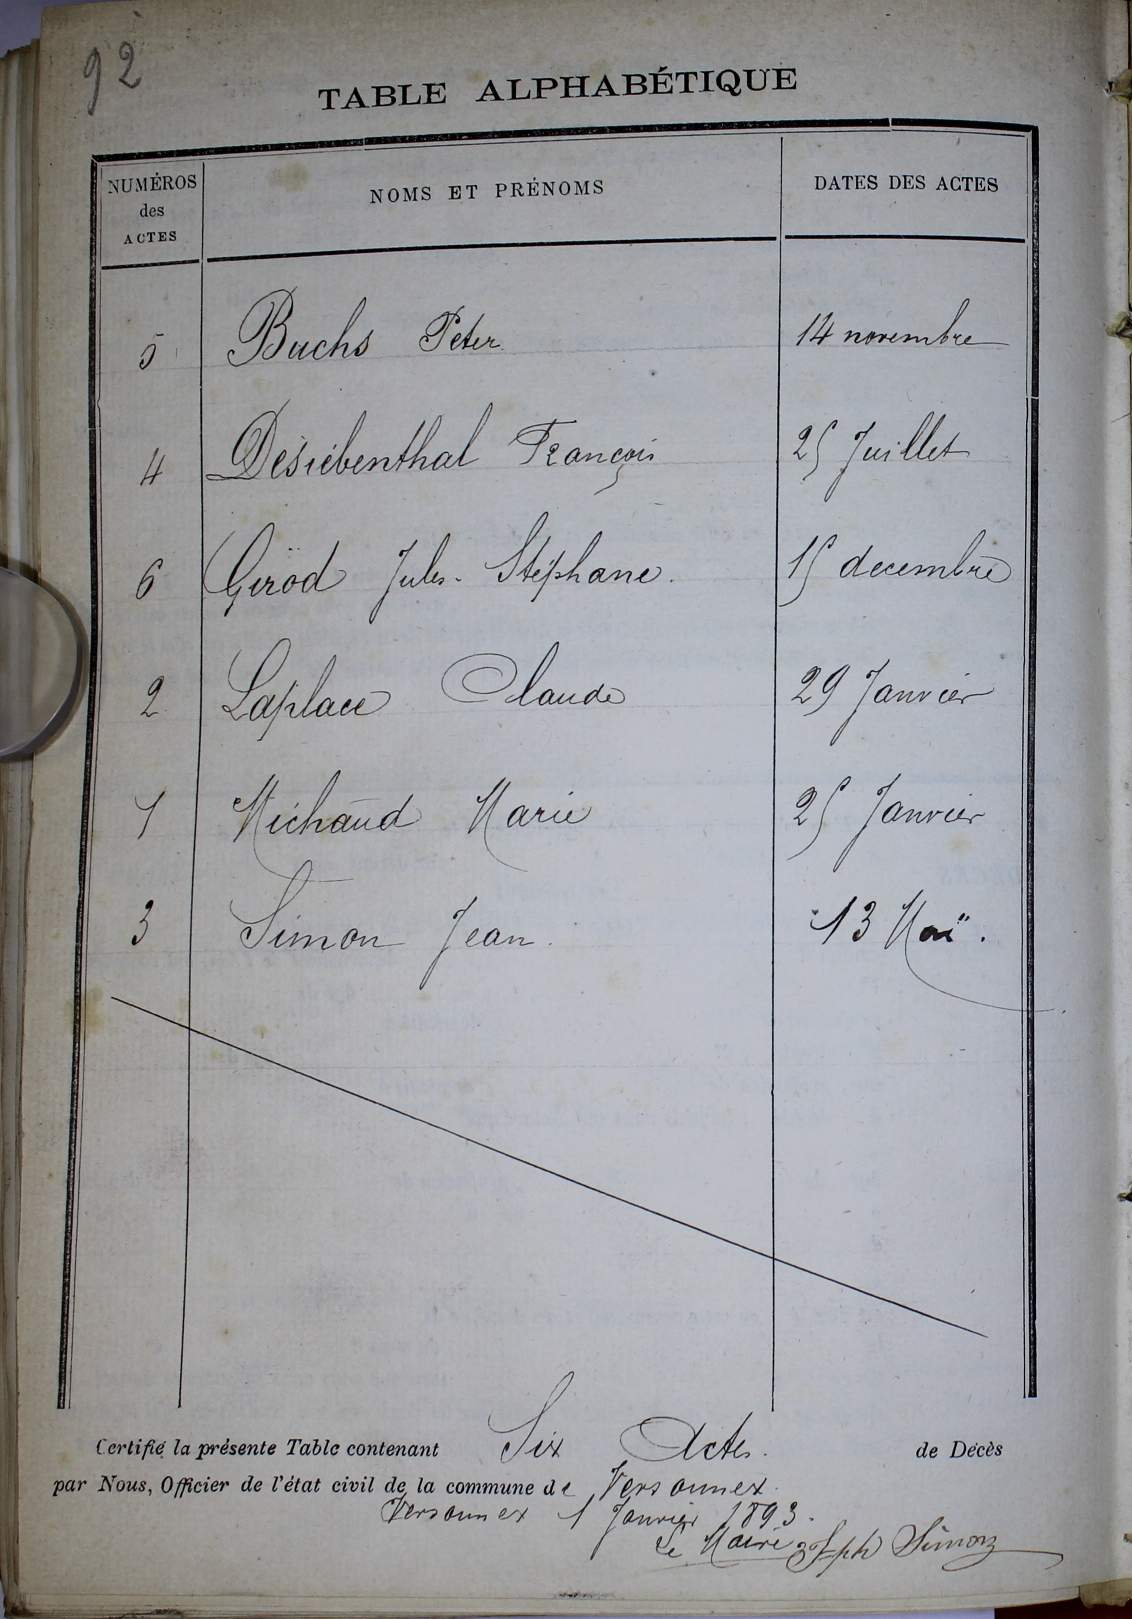 92
TABLE ALPHABÉTIQUE
NUMÉROS
des
ACTES
NOMS ET PRÉNOMS
DATES DES ACTES
5 Buchs Peter 14 novembre
4 Desiébenthal François 25 Juillet
6 Girod Jules-Stéphane. 15 decembre
2 Laplace Claude 29 Janvier
1 Michaud Marie 25 Janvier
3 Simon Jean. 13 Mai.
Certifié la présente Table contenant Six Actes. de Décès
par Nous, Officier de l'état civil de la commune de Versonnex.
Versonnex 1 Janvier 1893.
Le Maire Jph Simon